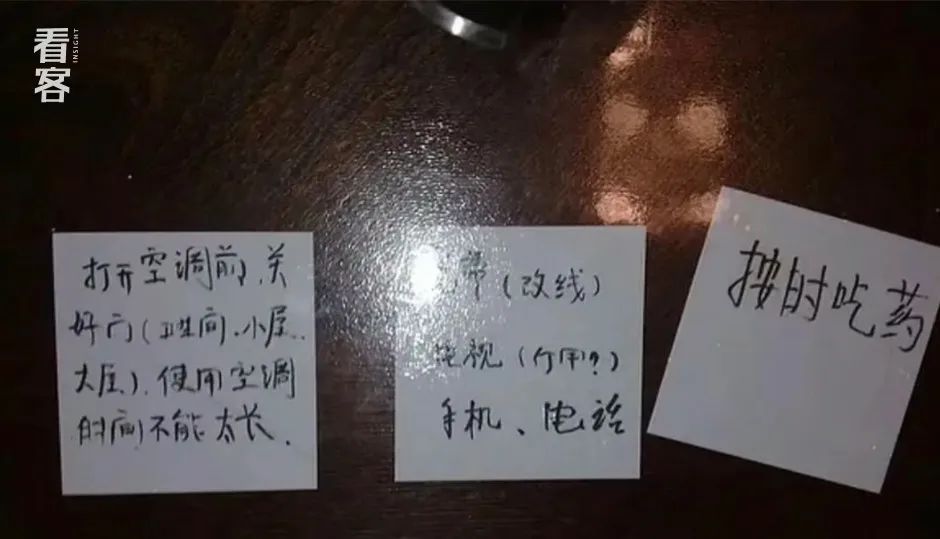 看客
INSIGHT
打开空调前,关
好门(卫生间、小屋、
大屋),使用空调
时间不能太长、
带(改线)
电视(作用?)
手机、电话
按时吃药